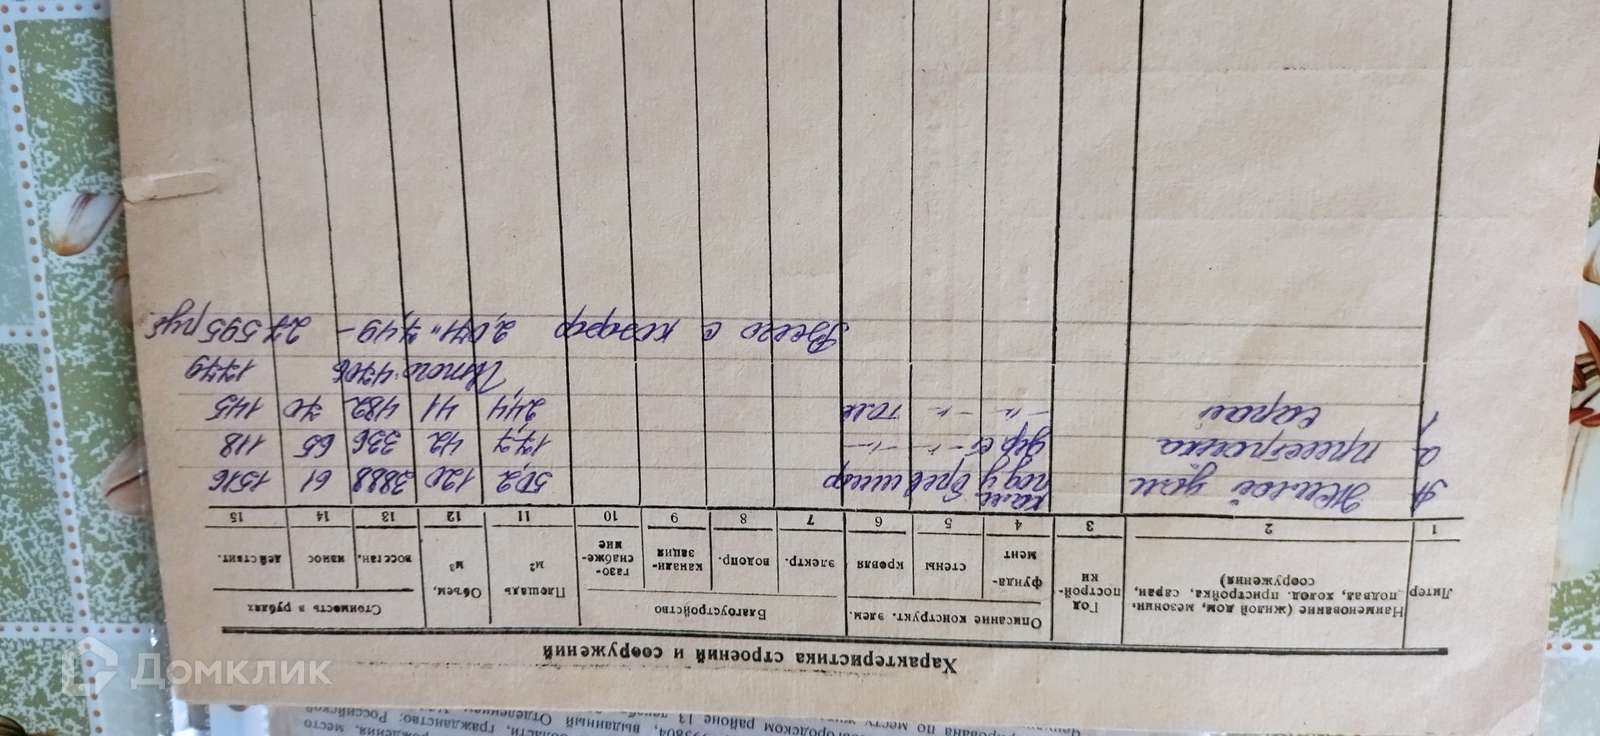 Характеристика строений и сооружений
Литер
Наименование (жилой дом, мезонин, подвал, холод. пристройка, сарай, сооружения)
Год построй-
ки
Описание конструкт. элем.
фунда-
мент
стены
кровля
Благоустройство
электр.
водопр.
канали-
зация
газо-
снабже-
ние
Площадь м²
Объем, м³
Стоимость в рублях
восстан.
износ
действит.
1 2 3 4 5 6 7 8 9 10 11 12 13 14 15
А Жилой дом шифер 50,2 120 3888 61 1516
а пристройка дер ст -"- -"- 17,7 42 336 65 118
1 сарай -"- -"- толь 24,4 41 482 70 145
Итого 4706 1779
Всего с коэфф 2,071 7,49 – 27595 руб
Домклик